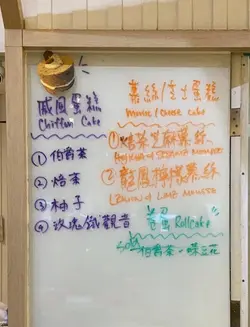 戚風蛋糕
Chiffon Cake
① 伯爵茶
② 焙茶
③ 柚子
④ 玫瑰鐵觀音
慕絲/芝士蛋糕
Mousse / Cheese Cake
① 焙茶芝麻慕絲
HOJICHA & SESAME MOUSSE
② 檸檬慕絲
LEMON & LIME MOUSSE
Roll Cake
Sold 伯爵茶・蝶豆花